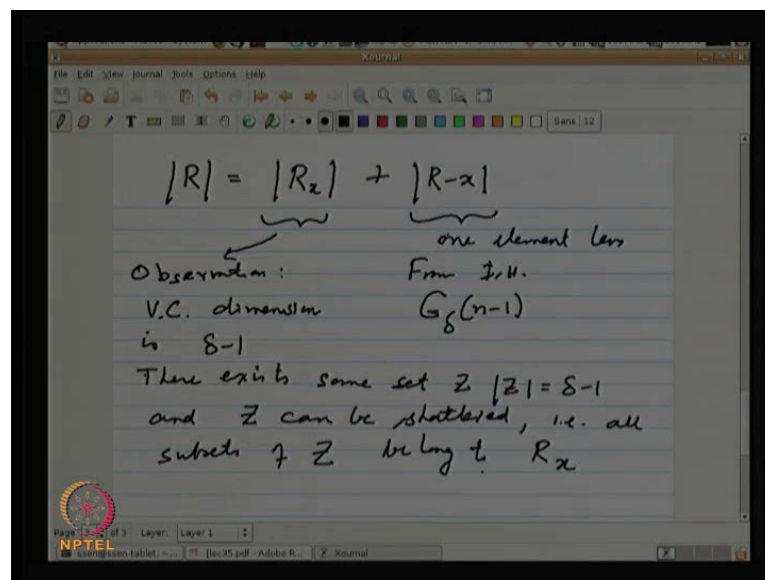 Xournal
File Edit View Journal Tools Options Help
Sans 12
|R| = |Rₓ| + |R-x|
one element less
Observation : From I.H.
V.C. dimension G_δ(n-1)
is δ-1
There exists some set Z |Z| = δ-1
and Z can be shattered, i.e. all
subsets of Z belong to Rₓ
Page 3 of 3 Layer: Layer 1
NPTEL
[lec35.pdf - Adobe R... Xournal